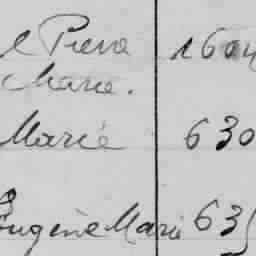 Pierre 1604
Marie.
Marie 630
Eugène Marie 635